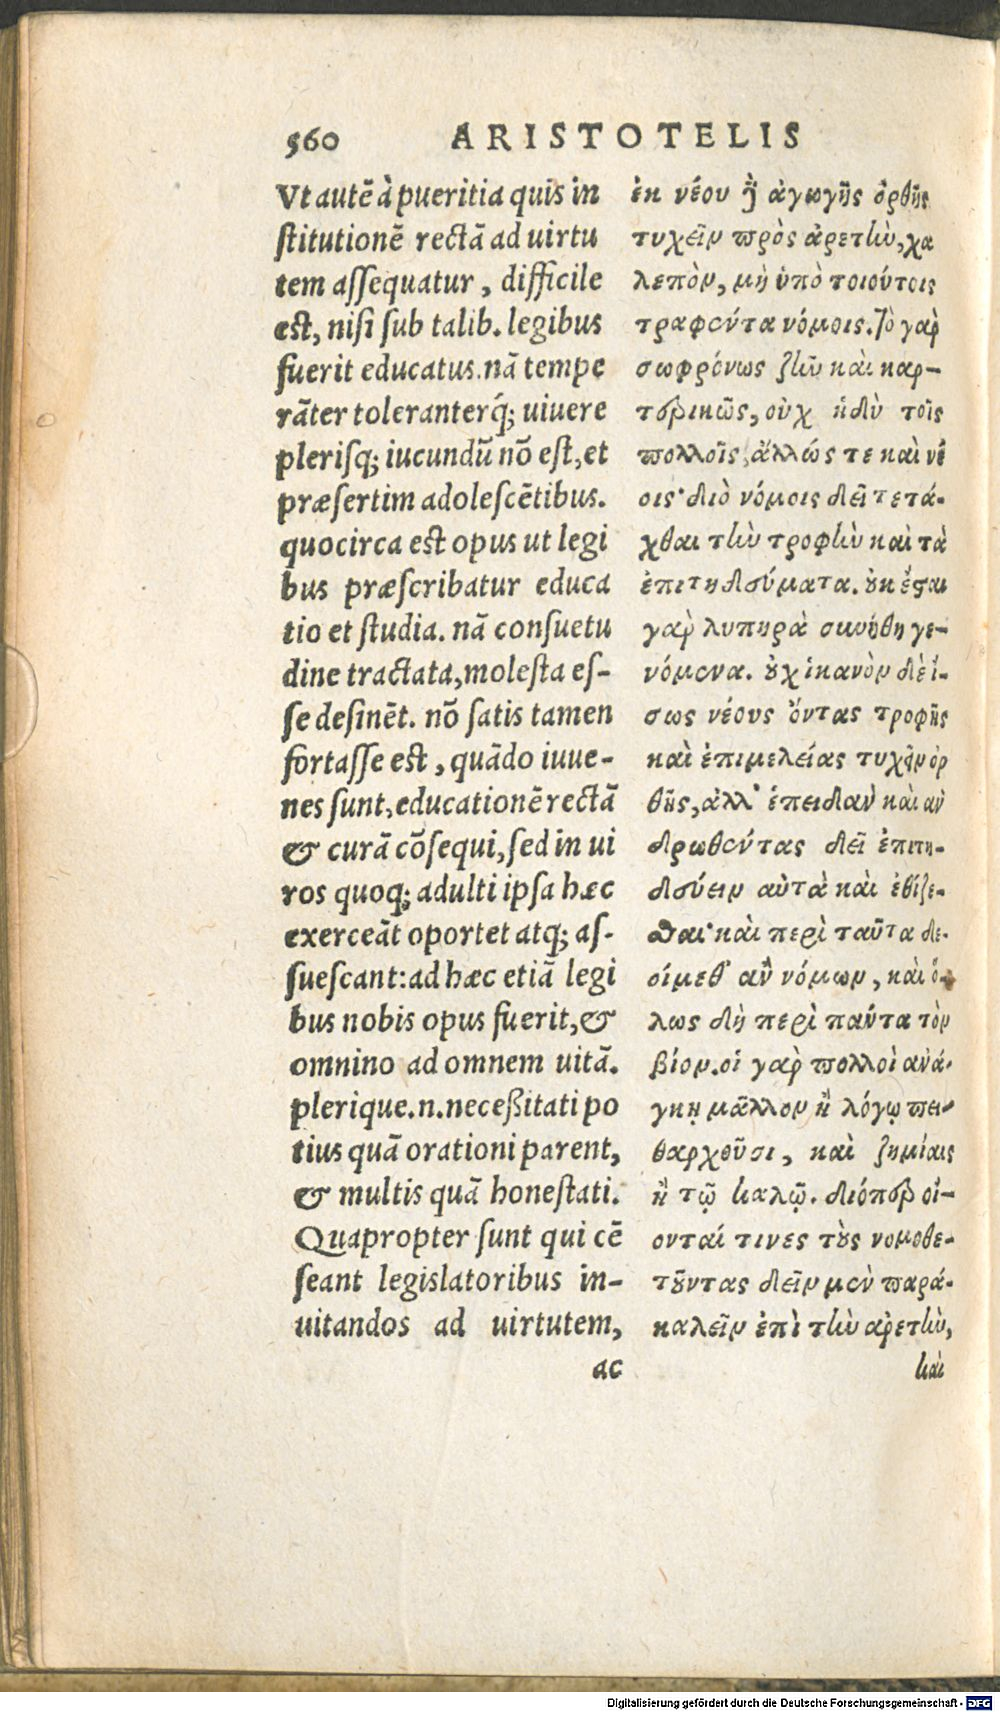 560 ARISTOTELIS
Vt autē à pueritia quis in
ſtitutionē rectā ad uirtu
tem aſſequatur, difficile
est, niſi ſub talib. legibus
fuerit educatus. nā tempe
rāter toleranterq́; uiuere
pleriſq; iucundū nō eſt, et
præſertim adoleſcētibus.
quocirca est opus ut legi
bus præſcribatur educa
tio et ſtudia. nā conſuetu
dine tractata, moleſta eſ-
ſe deſinēt. nō ſatis tamen
fortaſſe est, quādo iuue-
nes ſunt, educationē rectā
& curā cōſequi, ſed in ui
ros quoq; adulti ipſa hæc
exerceāt oportet atq; aſ-
ſueſcant: ad hæc etiā legi
bus nobis opus fuerit, &
omnino ad omnem uitā.
plerique.n. neceßitati po
tius quā orationi parent,
& multis quā honeſtati.
Quapropter ſunt qui cē
ſeant legislatoribus in-
uitandos ad uirtutem,
ac
ἐκ νέου δ̓ ἀγωγῆς ὀρθῆς
τυχεῖν πρὸς ἀρετὴν, χα
λεπὸν, μὴ ὑπὸ τοιούτοις
τραφέντα νόμοις. τὸ γὰρ
σωφρόνως ζῆν καὶ καρ-
τερικῶς, οὐχ ἡδὺ τοῖς
πολλοῖς, ἄλλώς τε καὶ νέ
οις· διὸ νόμοις δεῖ τετά-
χθαι τὴν τροφὴν καὶ τὰ
ἐπιτηδεύματα. ȣκ ἔϛαι
γὰρ λυπηρὰ συνήθη γε-
νόμενα. ȣχ ἱκανὸν δὲ ἴ-
σως νέους ὄντας τροφῆς
καὶ ἐπιμελείας τυχεῖν ὀρ
θῆς, ἀλλ' ἐπειδὰν καὶ ἀν
δρωθέντας δεῖ ἐπιτη-
δεύειν αὐτὰ καὶ ἐθίζε-
σθαι· καὶ περὶ ταῦτα δε-
οίμεθ' ἂν νόμων, καὶ ὅ-
λως δὴ περὶ πάντα τὸν
βίον. οἱ γὰρ πολλοὶ ἀνά-
γκῃ μᾶλλον ἢ λόγῳ πει-
θαρχȣ͂σι, καὶ ζημίαις
ἢ τῷ καλῷ. διόπερ οἴ-
ονταί τινες τȣ̀ς νομοθε-
τȣ͂ντας δεῖν μὲν παρά-
καλεῖν ἐπὶ τὴν ἀρετὴν,
καὶ
Digitalisierung gefördert durch die Deutsche Forschungsgemeinschaft - DFG